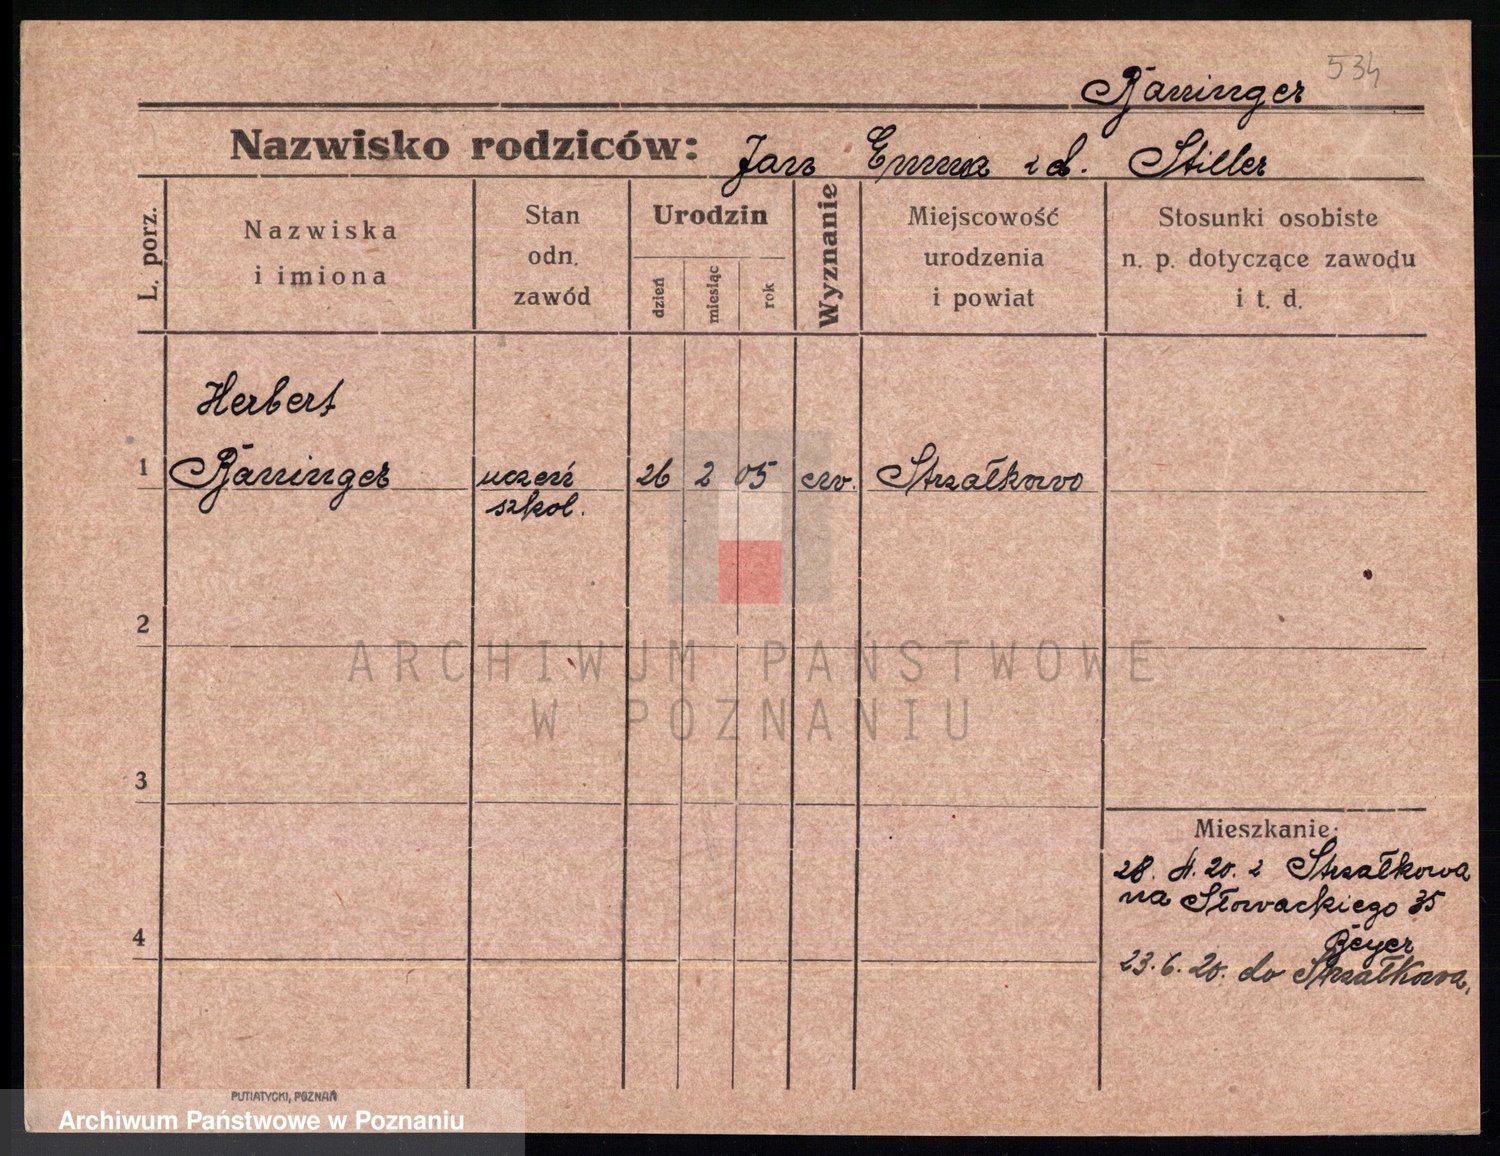 534
Bäninger
Nazwisko rodziców: Jan Emma z d. Stiller
L. porz.
Nazwiska
i imiona
Stan
odn.
zawód
Urodzin
dzień
miesiąc
rok
Wyznanie
Miejscowość
urodzenia
i powiat
Stosunki osobiste
n. p. dotyczące zawodu
i t. d.
Herbert
1 Bäninger uczeń 26 2 05 ew. Strzałkowo
szkol.
2
ARCHIWUM PAŃSTWOWE
W POZNANIU
3
Mieszkanie:
28. 4. 20. z Strzałkowa
na Słowackiego 35
4
Beyer
23. 6. 20. do Strzałkowa,
PUTIATYCKI, POZNAŃ
Archiwum Państwowe w Poznaniu